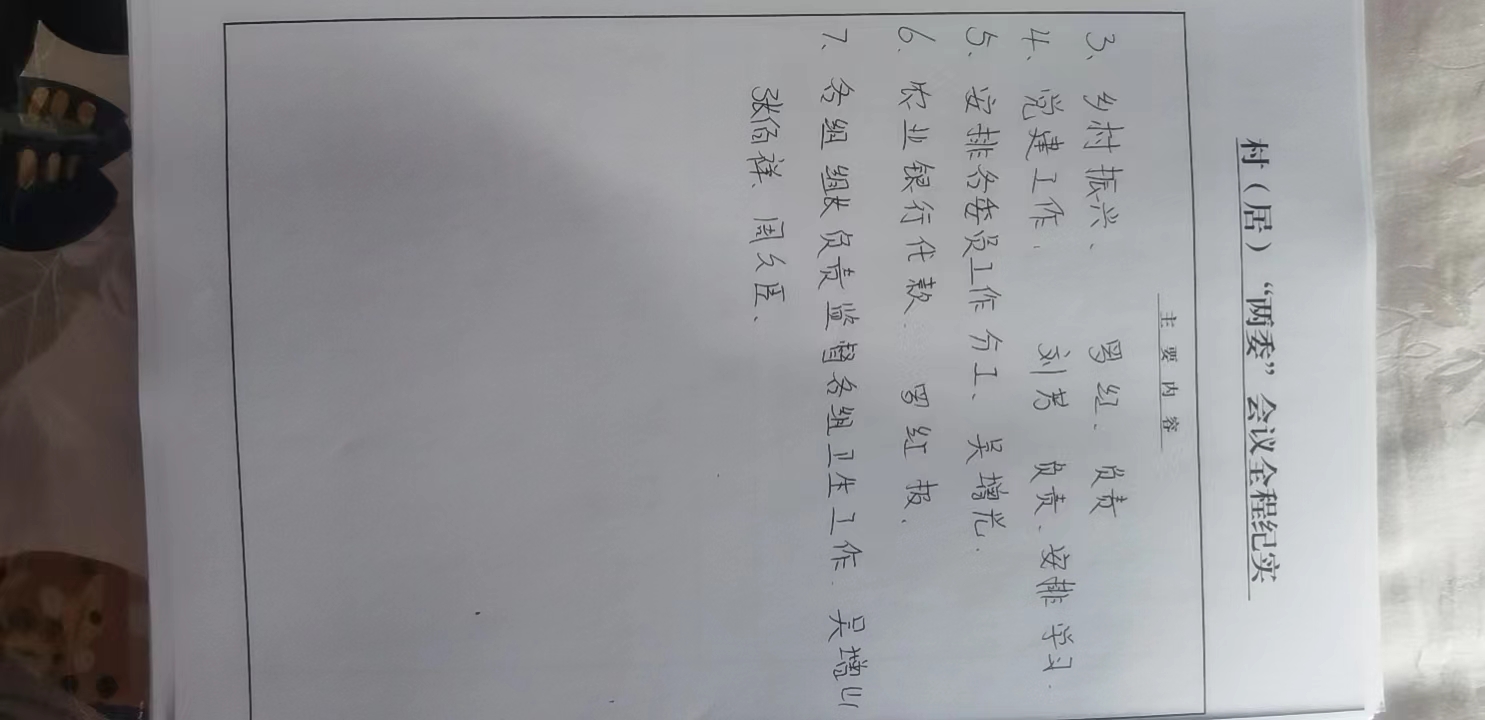 村（居）“两委”会议全程纪实
主要内容
3、乡村振兴、 罗红、负责
4、党建工作. 刘芳 负责、安排学习.
5、安排各委员工作分工、吴增光.
6、农业银行代款. 罗红报.
7、各组组长负责监督各组卫生工作. 吴增山
张佰祥、周久臣、